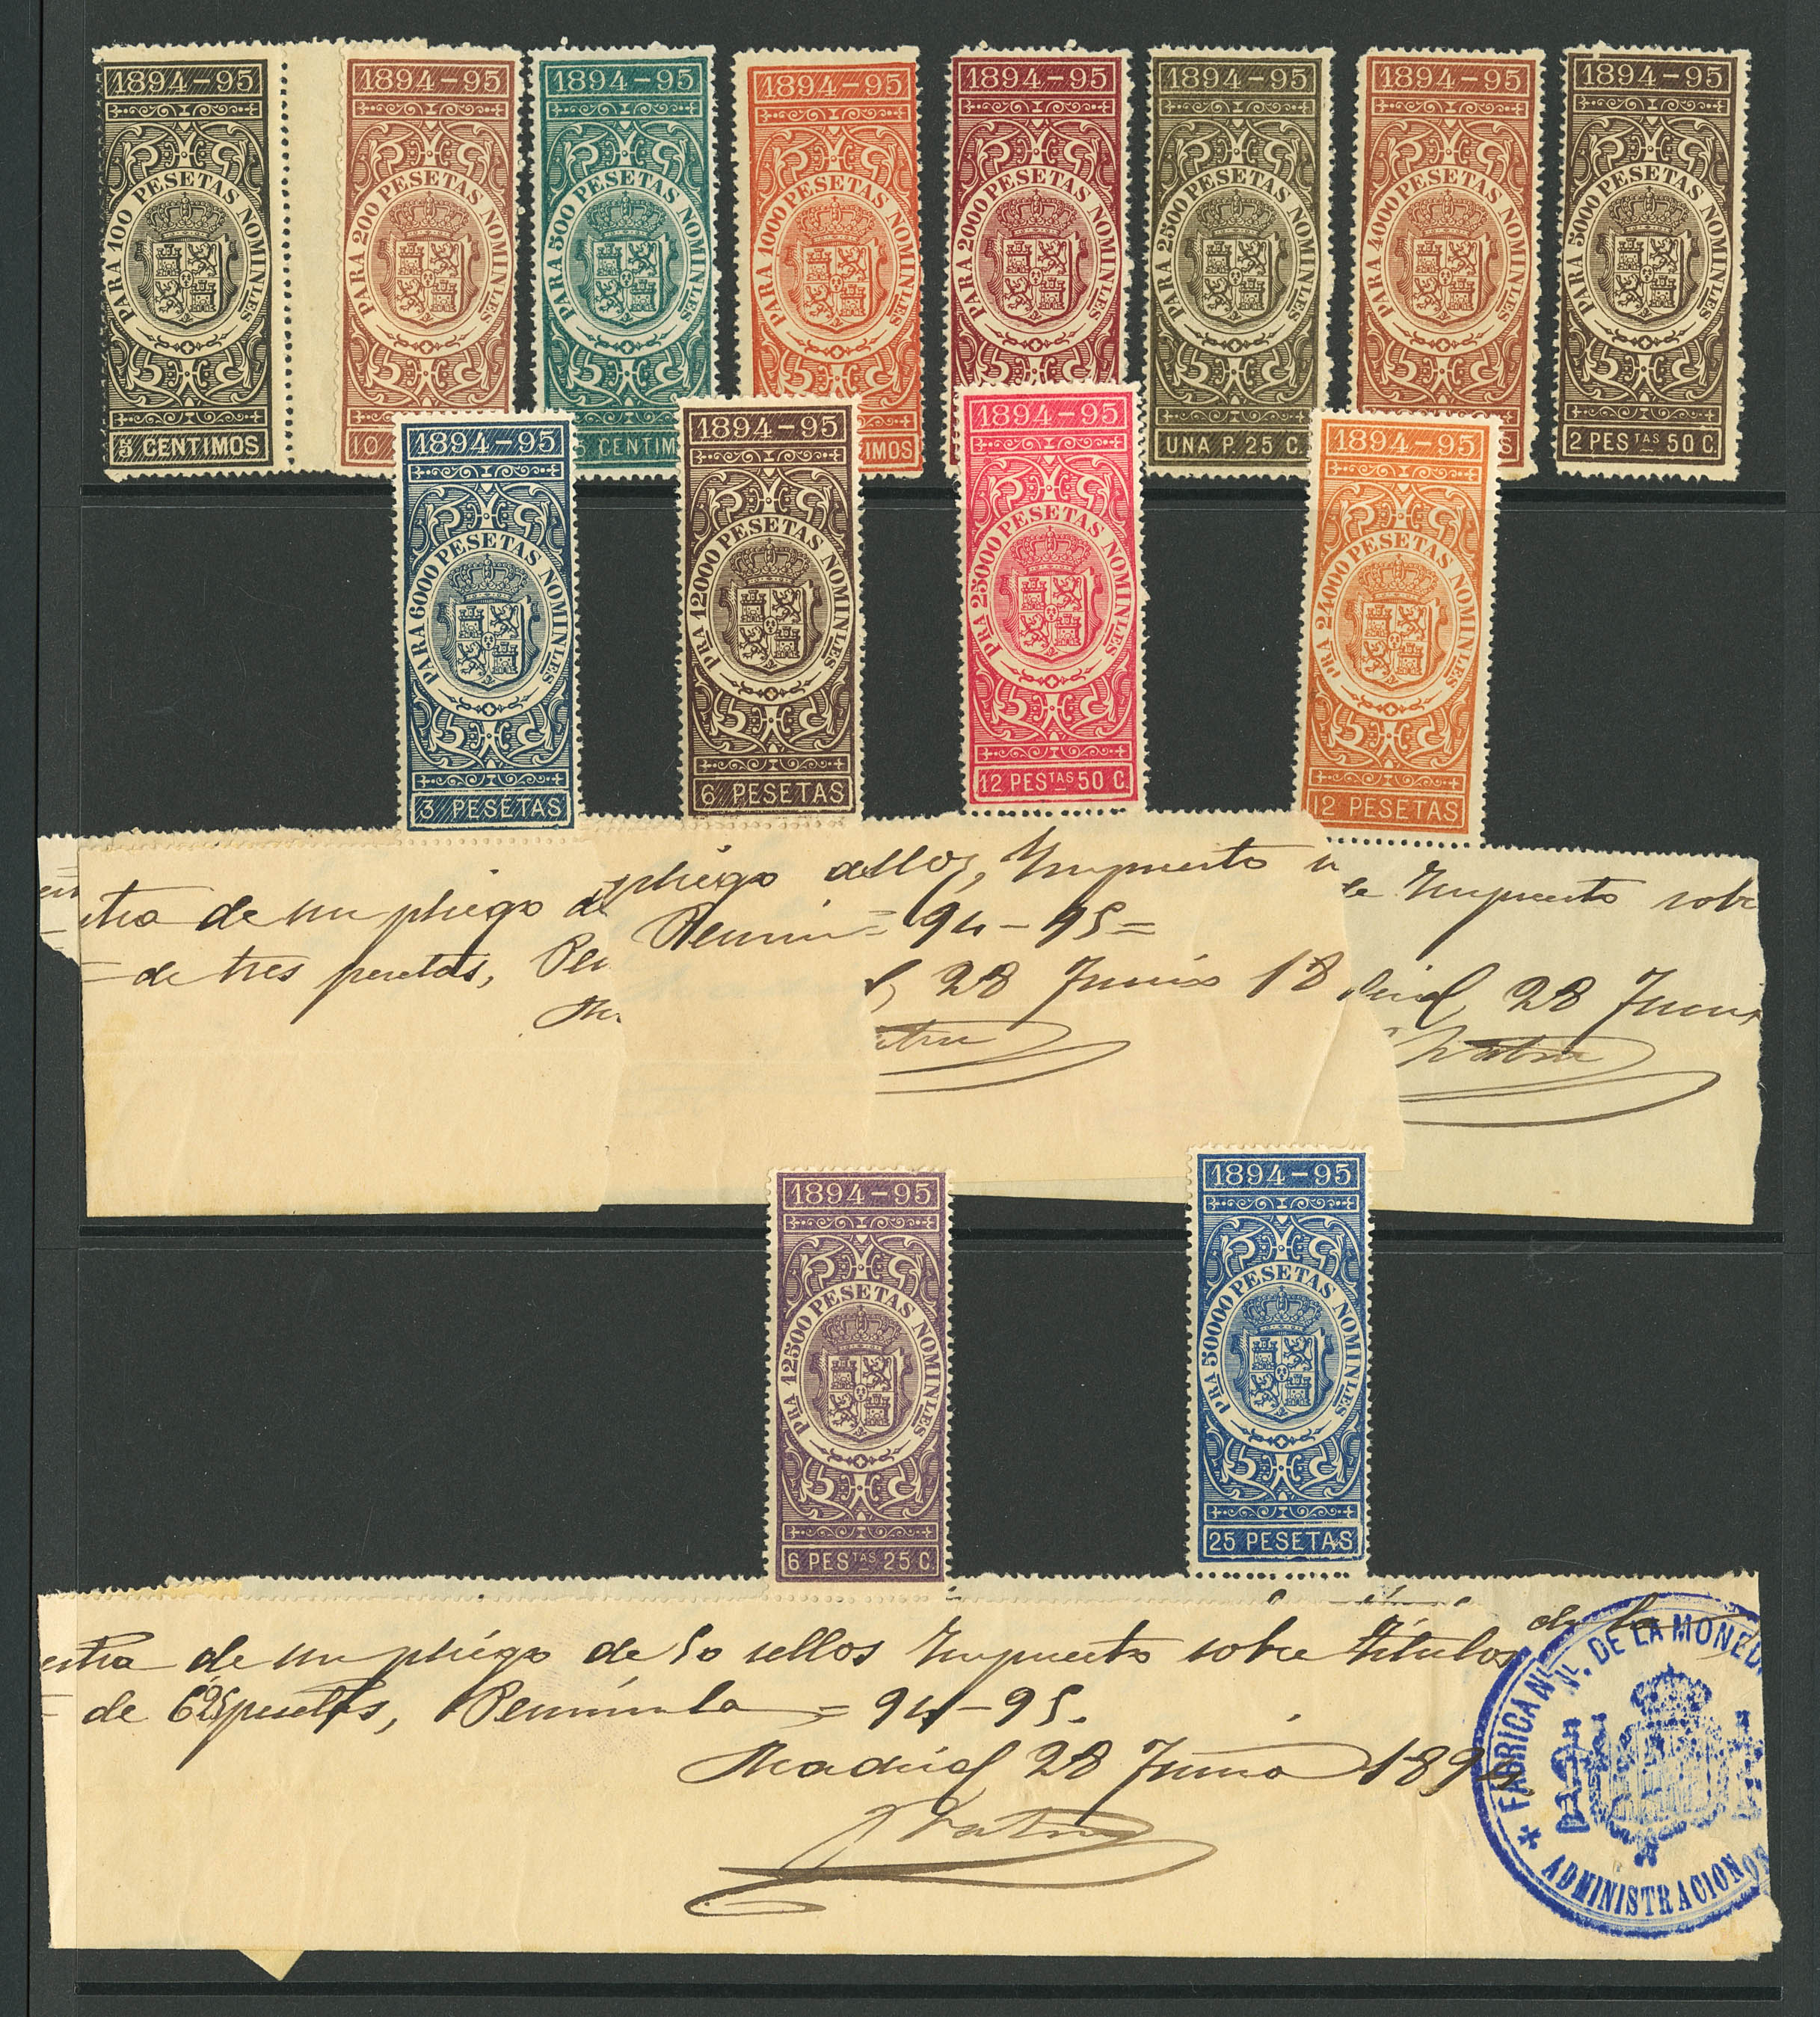 1894-95
PARA 100 PESETAS NOMINLES
5 CENTIMOS
1894-95
PARA 200 PESETAS NOMINLES
10
1894-95
PARA 500 PESETAS NOMINLES
5 CENTIM
1894-95
PARA 1000 PESETAS NOMINLES
IMOS
1894-95
PARA 2000 PESETAS NOMINLES
1894-95
PARA 2500 PESETAS NOMINLES
UNA P. 25 C.
1894-95
PARA 4000 PESETAS NOMINLES
S
1894-95
PARA 5000 PESETAS NOMINLES
2 PESTAS 50 C.
1894-95
PARA 6000 PESETAS NOMINLES
3 PESETAS
1894-95
PRA 12000 PESETAS NOMINLES
6 PESETAS
1894-95
PRA 25000 PESETAS NOMINLES
12 PESTAS 50 C.
1894-95
PRA 24000 PESETAS NOMINLES
12 PESETAS
stra de un pliego de
= de tres pesetas, Pen
pliego sellos, Impuesto
Penin = 94-95=
28 Junio 18
de Impuesto sobr
drid, 28 Juni
1894-95
PRA 12500 PESETAS NOMINLES
6 PESTAS 25 C.
1894-95
PRA 50000 PESETAS NOMINLES
25 PESETAS
estra de un pliego de 50 sellos Impuesto sobre títulos de la
= de 6'25 pesetas, Península = 94-95.
Madrid 28 Junio 1894
FABRICA NL. DE LA MONED
ADMINISTRACION